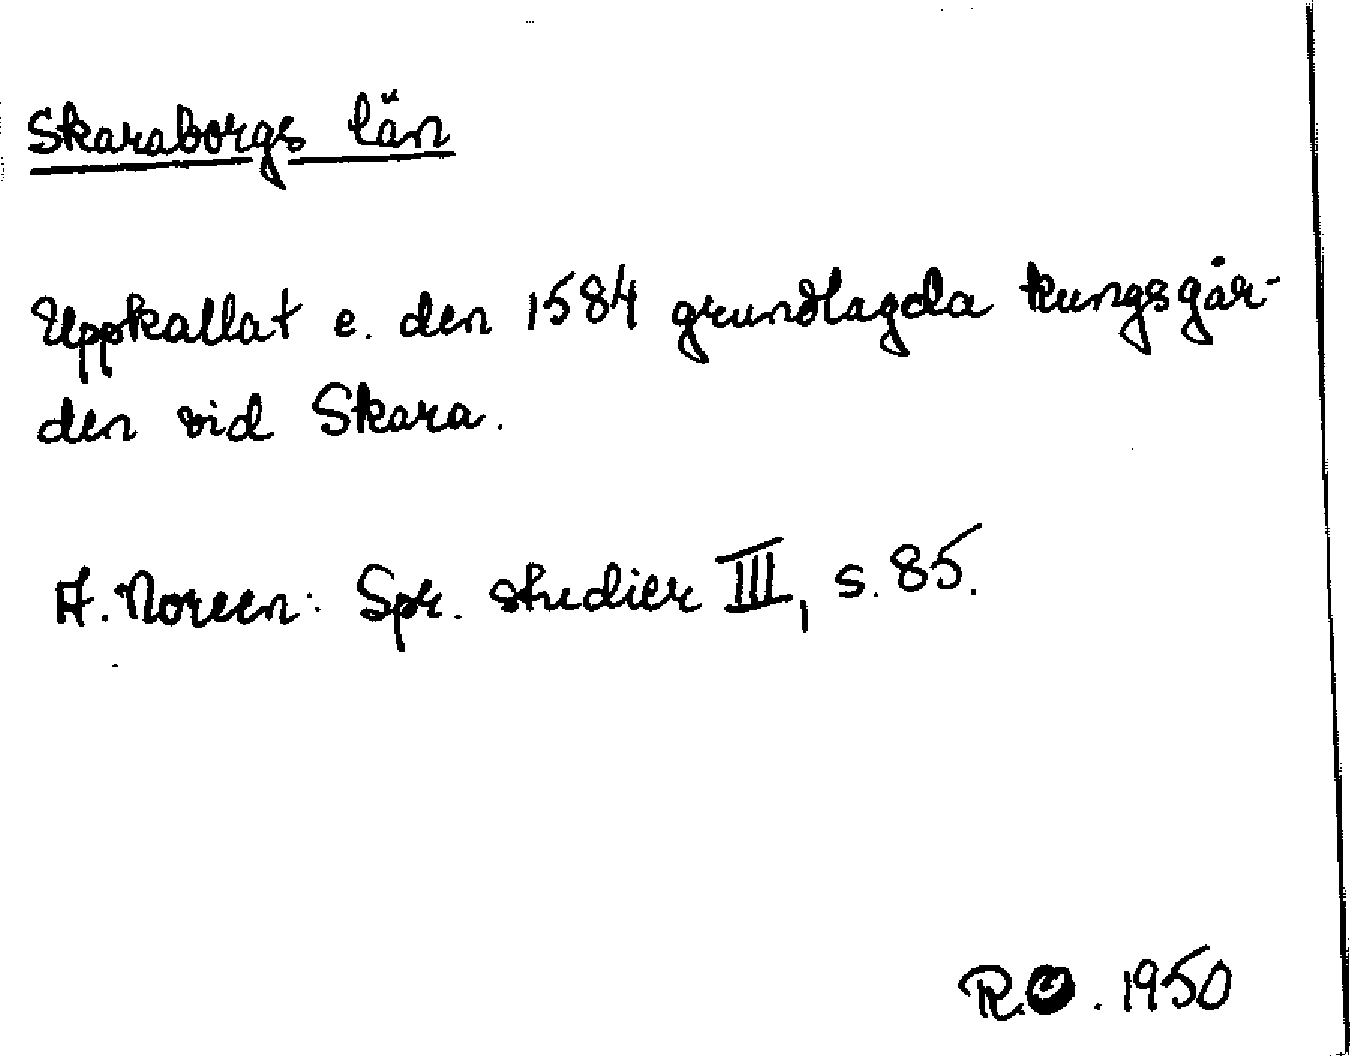 Skaraborgs län
Uppkallat e. den 1584 grundlagda kungsgår-
den vid Skara.
A. Noreen: Spr. studier III, s. 85.
R.O. 1950